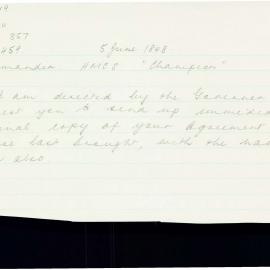 357
454
5 June 1868
mander HMCS "Champion"
I am directed by the Governor
est you to send up immedia
nal copy of your Agreement
last brought, with the
also.